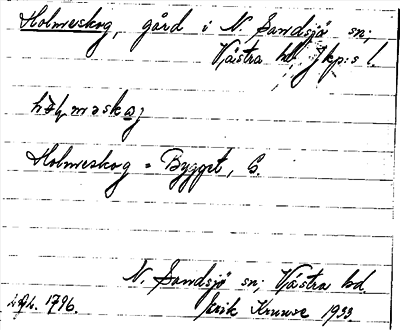 Holmeskog, gård i N. Sandsjö sn;
Västra hd. Jkp:s l.
Holmeskog = Bygget, G.
N. Sandsjö sn; Västra hd.
1796. Erik Kruuse 1933.